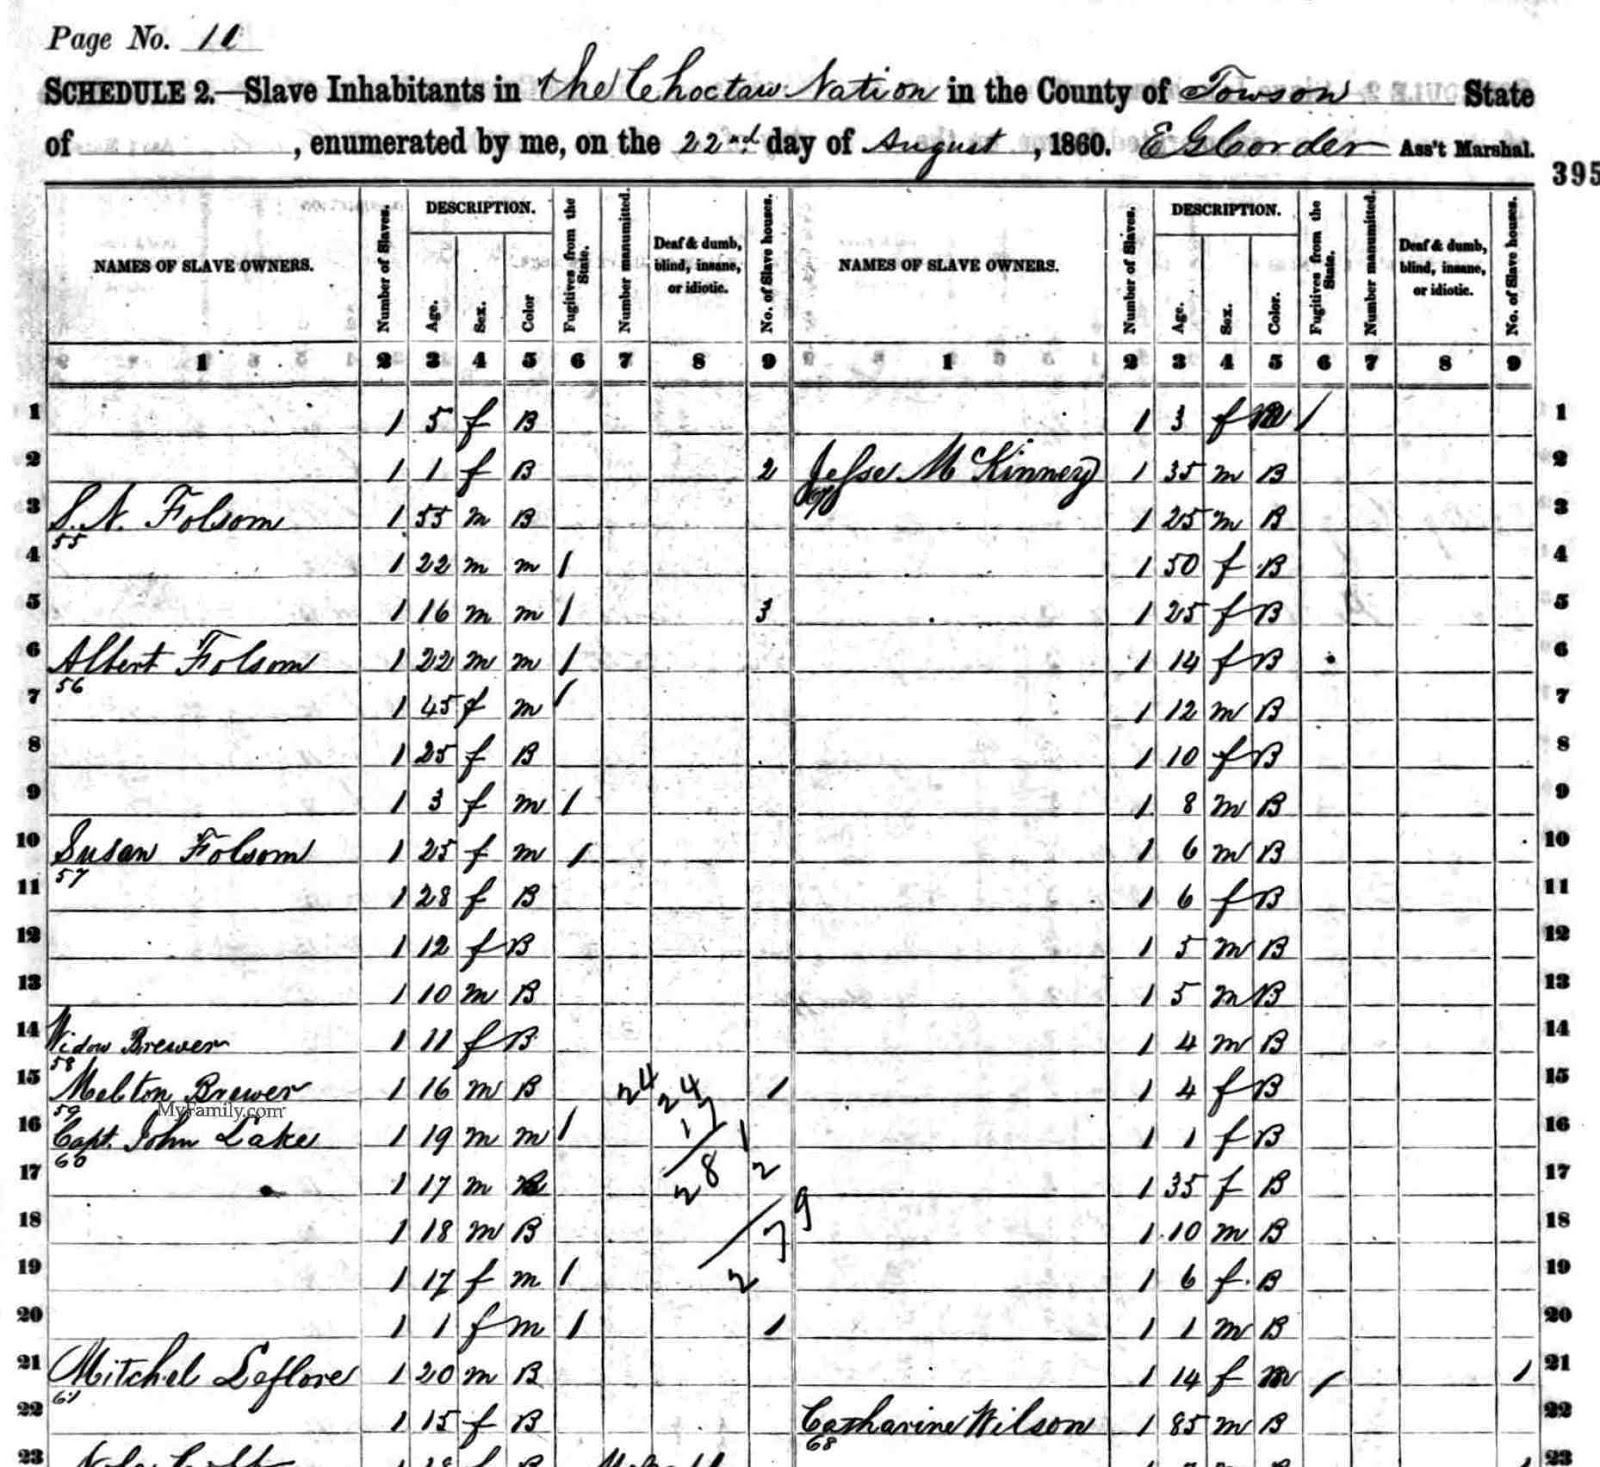 Page No. 11
SCHEDULE 2.—Slave Inhabitants in the Choctaw Nation in the County of Towson State
of , enumerated by me, on the 22nd day of August, 1860. E G Corder Ass't Marshal.
395
NAMES OF SLAVE OWNERS. Number of Slaves. DESCRIPTION. Age. Sex. Color Fugitives from the State. Number manumitted. Deaf & dumb, blind, insane, or idiotic. No. of Slave houses. NAMES OF SLAVE OWNERS. Number of Slaves. DESCRIPTION. Age. Sex. Color. Fugitives from the State. Number manumitted. Deaf & dumb, blind, insane, or idiotic. No. of Slave houses.
1 2 3 4 5 6 7 8 9 1 2 3 4 5 6 7 8 9
1 1 5 f B 1 3 f 1 1
2 1 1 f B 2 Jesse McKinney 1 35 m B 2
3 S. N. Folsom 1 55 m B 1 25 m B 3
55
4 1 22 m m 1 1 50 f B 4
5 1 16 m m 1 3 1 25 f B 5
6 Albert Folsom 1 22 m m 1 1 14 f B 6
56
7 1 45 f m 1 1 12 m B 7
8 1 25 f B 1 10 f B 8
9 1 3 f m 1 1 8 m B 9
10 Susan Folsom 1 25 f m 1 1 6 m B 10
57
11 1 28 f B 1 6 f B 11
12 1 12 f B 1 5 m B 12
13 1 10 m B 1 5 m B 13
14 Widow Brewer 1 11 f B 1 4 m B 14
58
15 Melton Brewer 1 16 m B 24 24 1 1 4 f B 15
59 MyFamily.com
16 Capt. John Lake 1 19 m m 1 17 1 1 1 f B 16
60
17 1 17 m B 28 2 1 35 f B 17
18 1 18 m B 79 1 10 m B 18
19 1 17 f m 1 2 1 6 f B 19
20 1 1 f m 1 1 1 1 m B 20
21 Mitchel Leflore 1 20 m B 1 14 f m 1 1 21
61
22 1 15 f B Catharine Wilson 1 85 m B 22
68
23 23